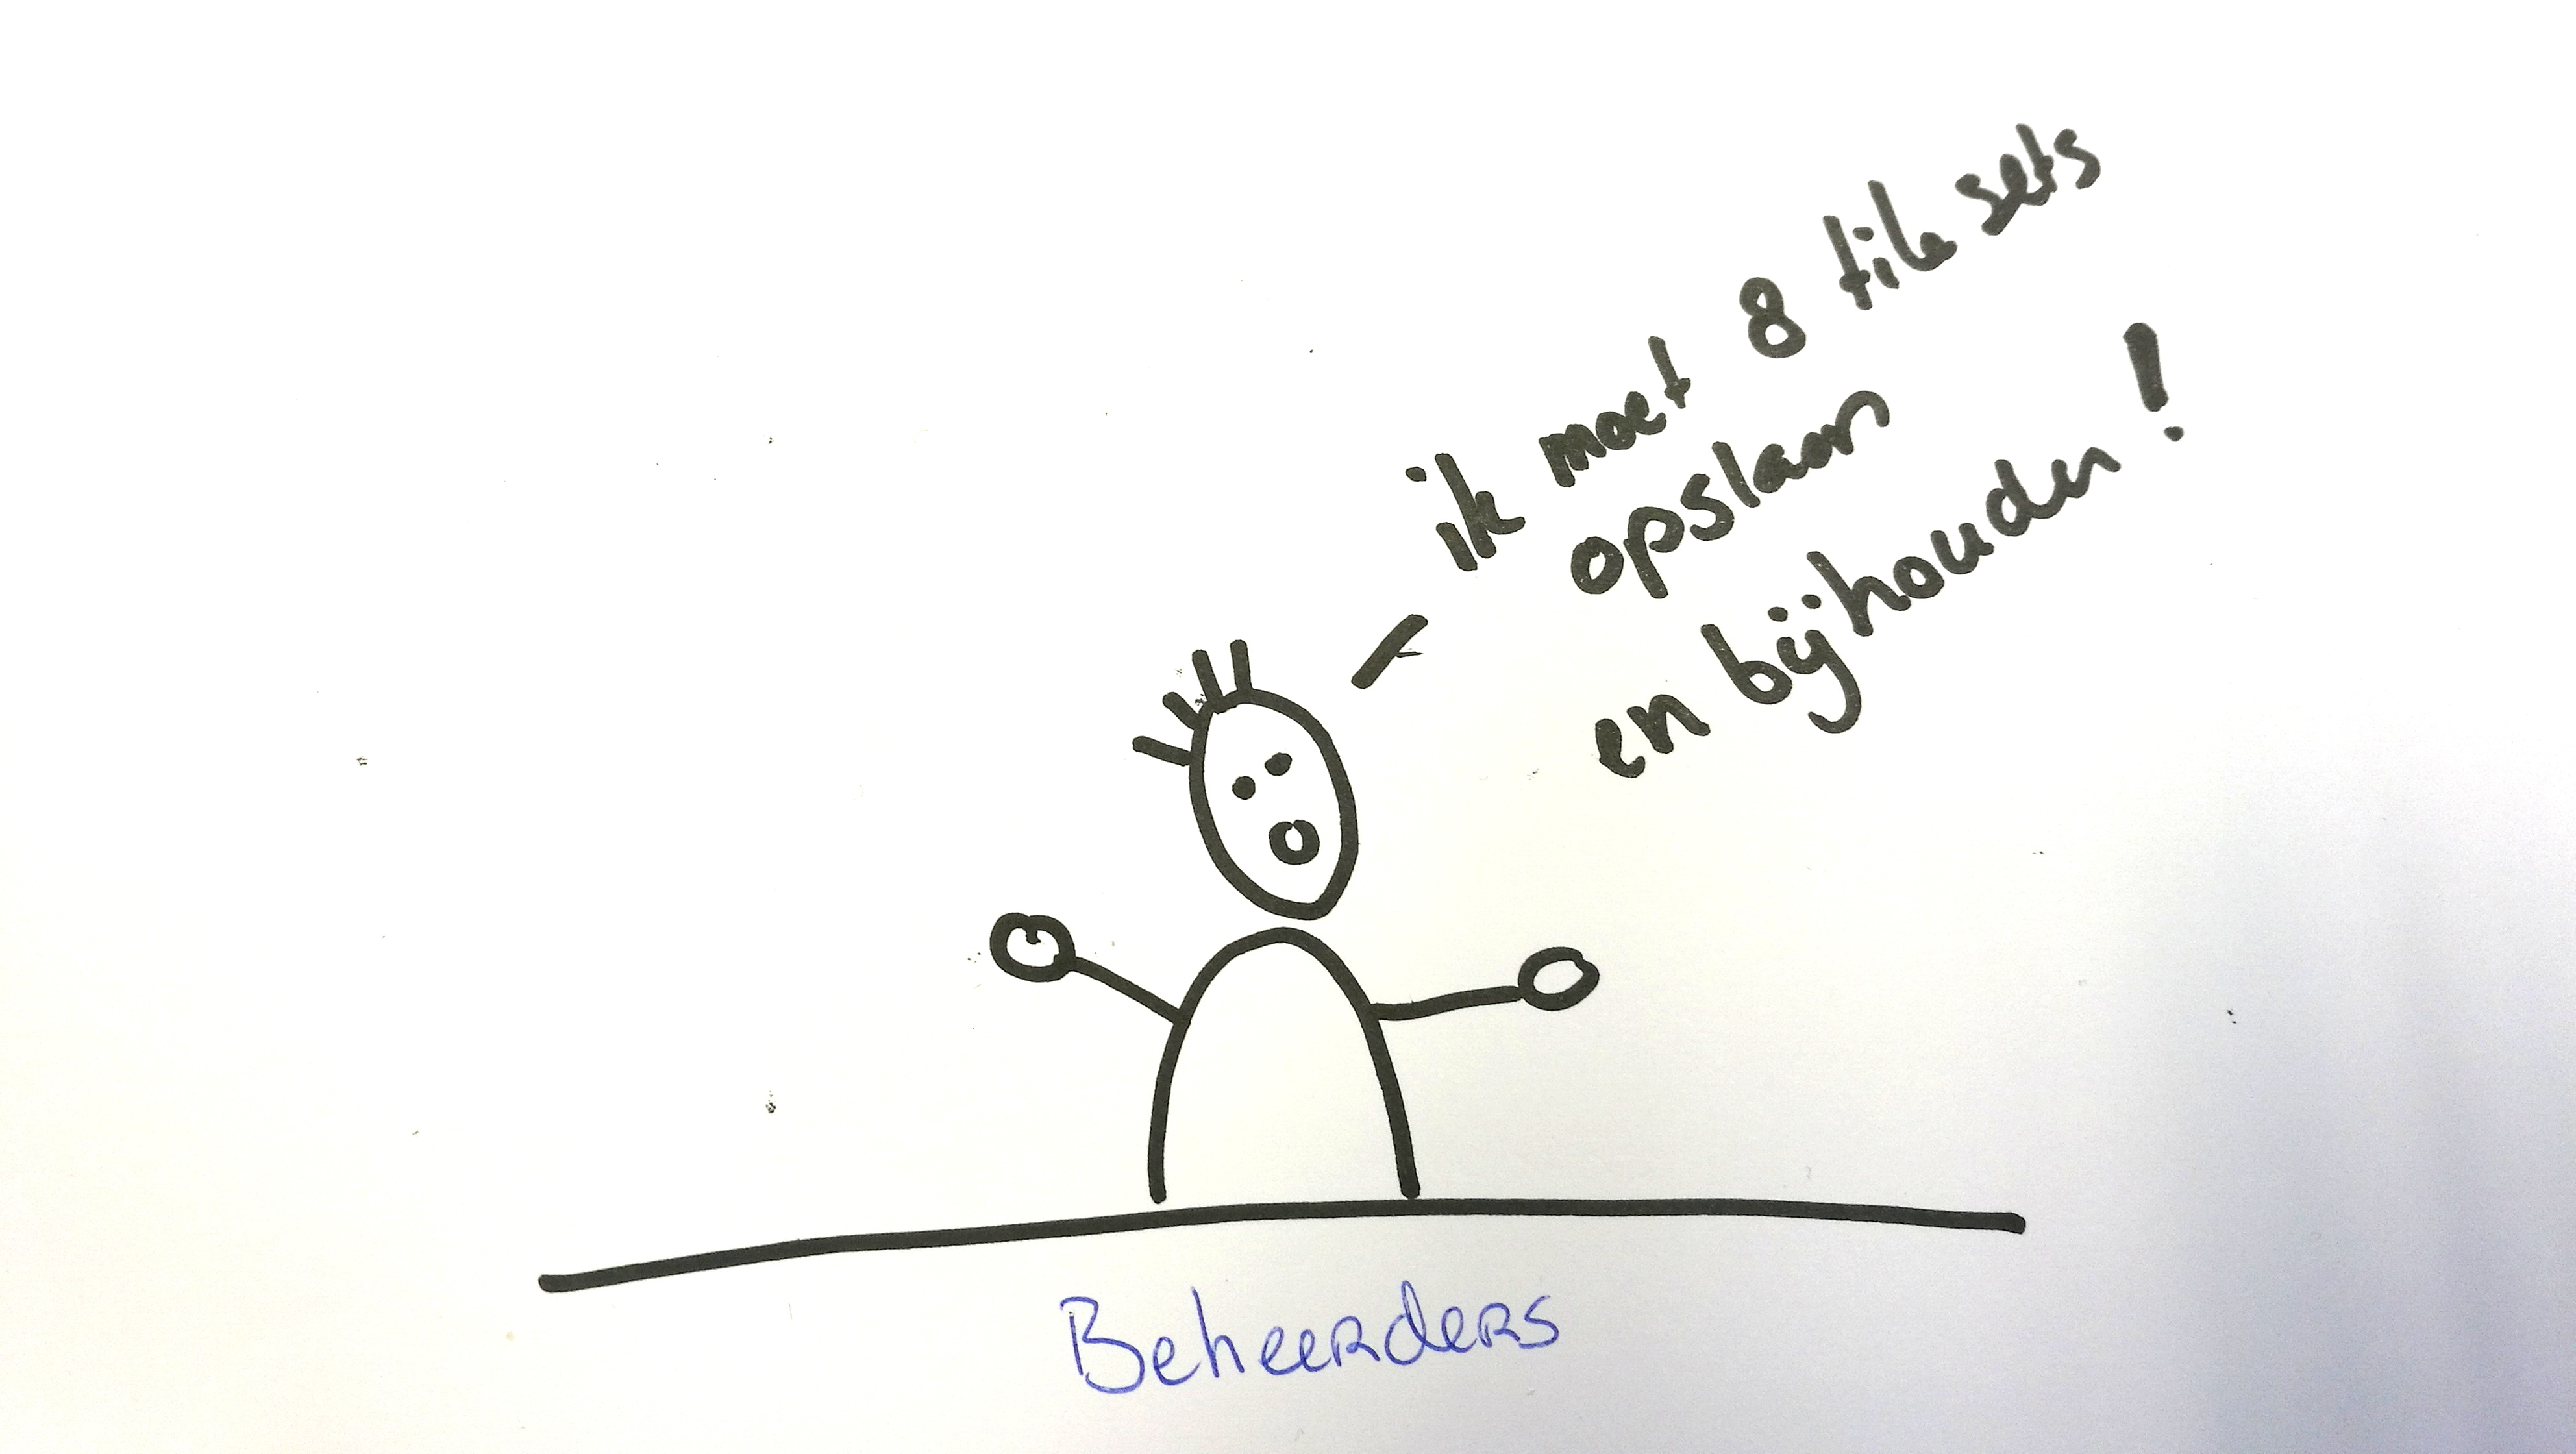 ik moet 8 tile sets
opslaan
en bijhouden!
Beheerders